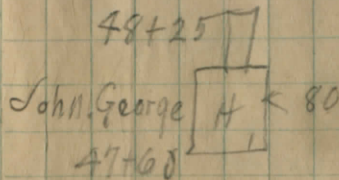 48+25
John. George H < 80
47+68